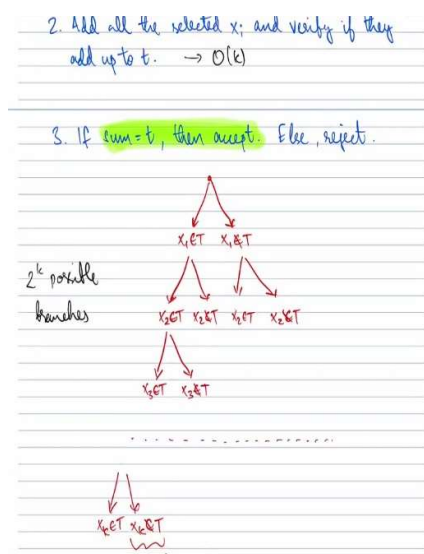 2. Add all the selected xᵢ and verify if they
add up to t. → O(k)
3. If sum = t, then accept. Else, reject.
x₁∈T x₁∉T
2ᵏ possible
branches
x₂∈T x₂∉T x₂∈T x₂∉T
x₃∈T x₃∉T
xₖ∈T xₖ∉T